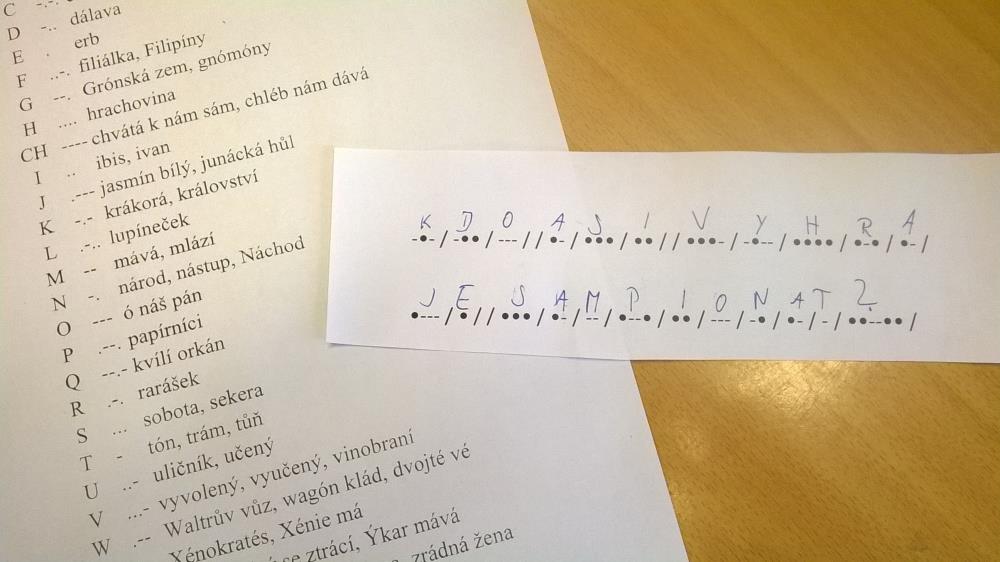 C -.-.
D -.. dálava
E . erb
F ..-. filiálka, Filipíny
G --. Grónská zem, gnómóny
H .... hrachovina
CH ---- chvátá k nám sám, chléb nám dává
I .. ibis, ivan
J .--- jasmín bílý, junácká hůl
K -.- krákorá, království
L .-.. lupíneček
M -- mává, mlází
N -. národ, nástup, Náchod
O --- ó náš pán
P .--. papírníci
Q --.- kvílí orkán
R .-. rarášek
S ... sobota, sekera
T - tón, trám, tůň
U ..- uličník, učený
V ...- vyvolený, vyučený, vinobraní
W .-- Waltrův vůz, wagón klád, dvojté vé
Xénokratés, Xénie má
se ztrácí, Ýkar mává
zrádná žena
K D O A S I V Y H R A
-●-/-●●/---//●-/●●●/●●//●●●-/-●--/●●●●/●-●/●-/
J E S A M P I O N A T ?
●---/●//●●●/●-/--/●--●/●●/---/-●/●-/-/●●--●●/